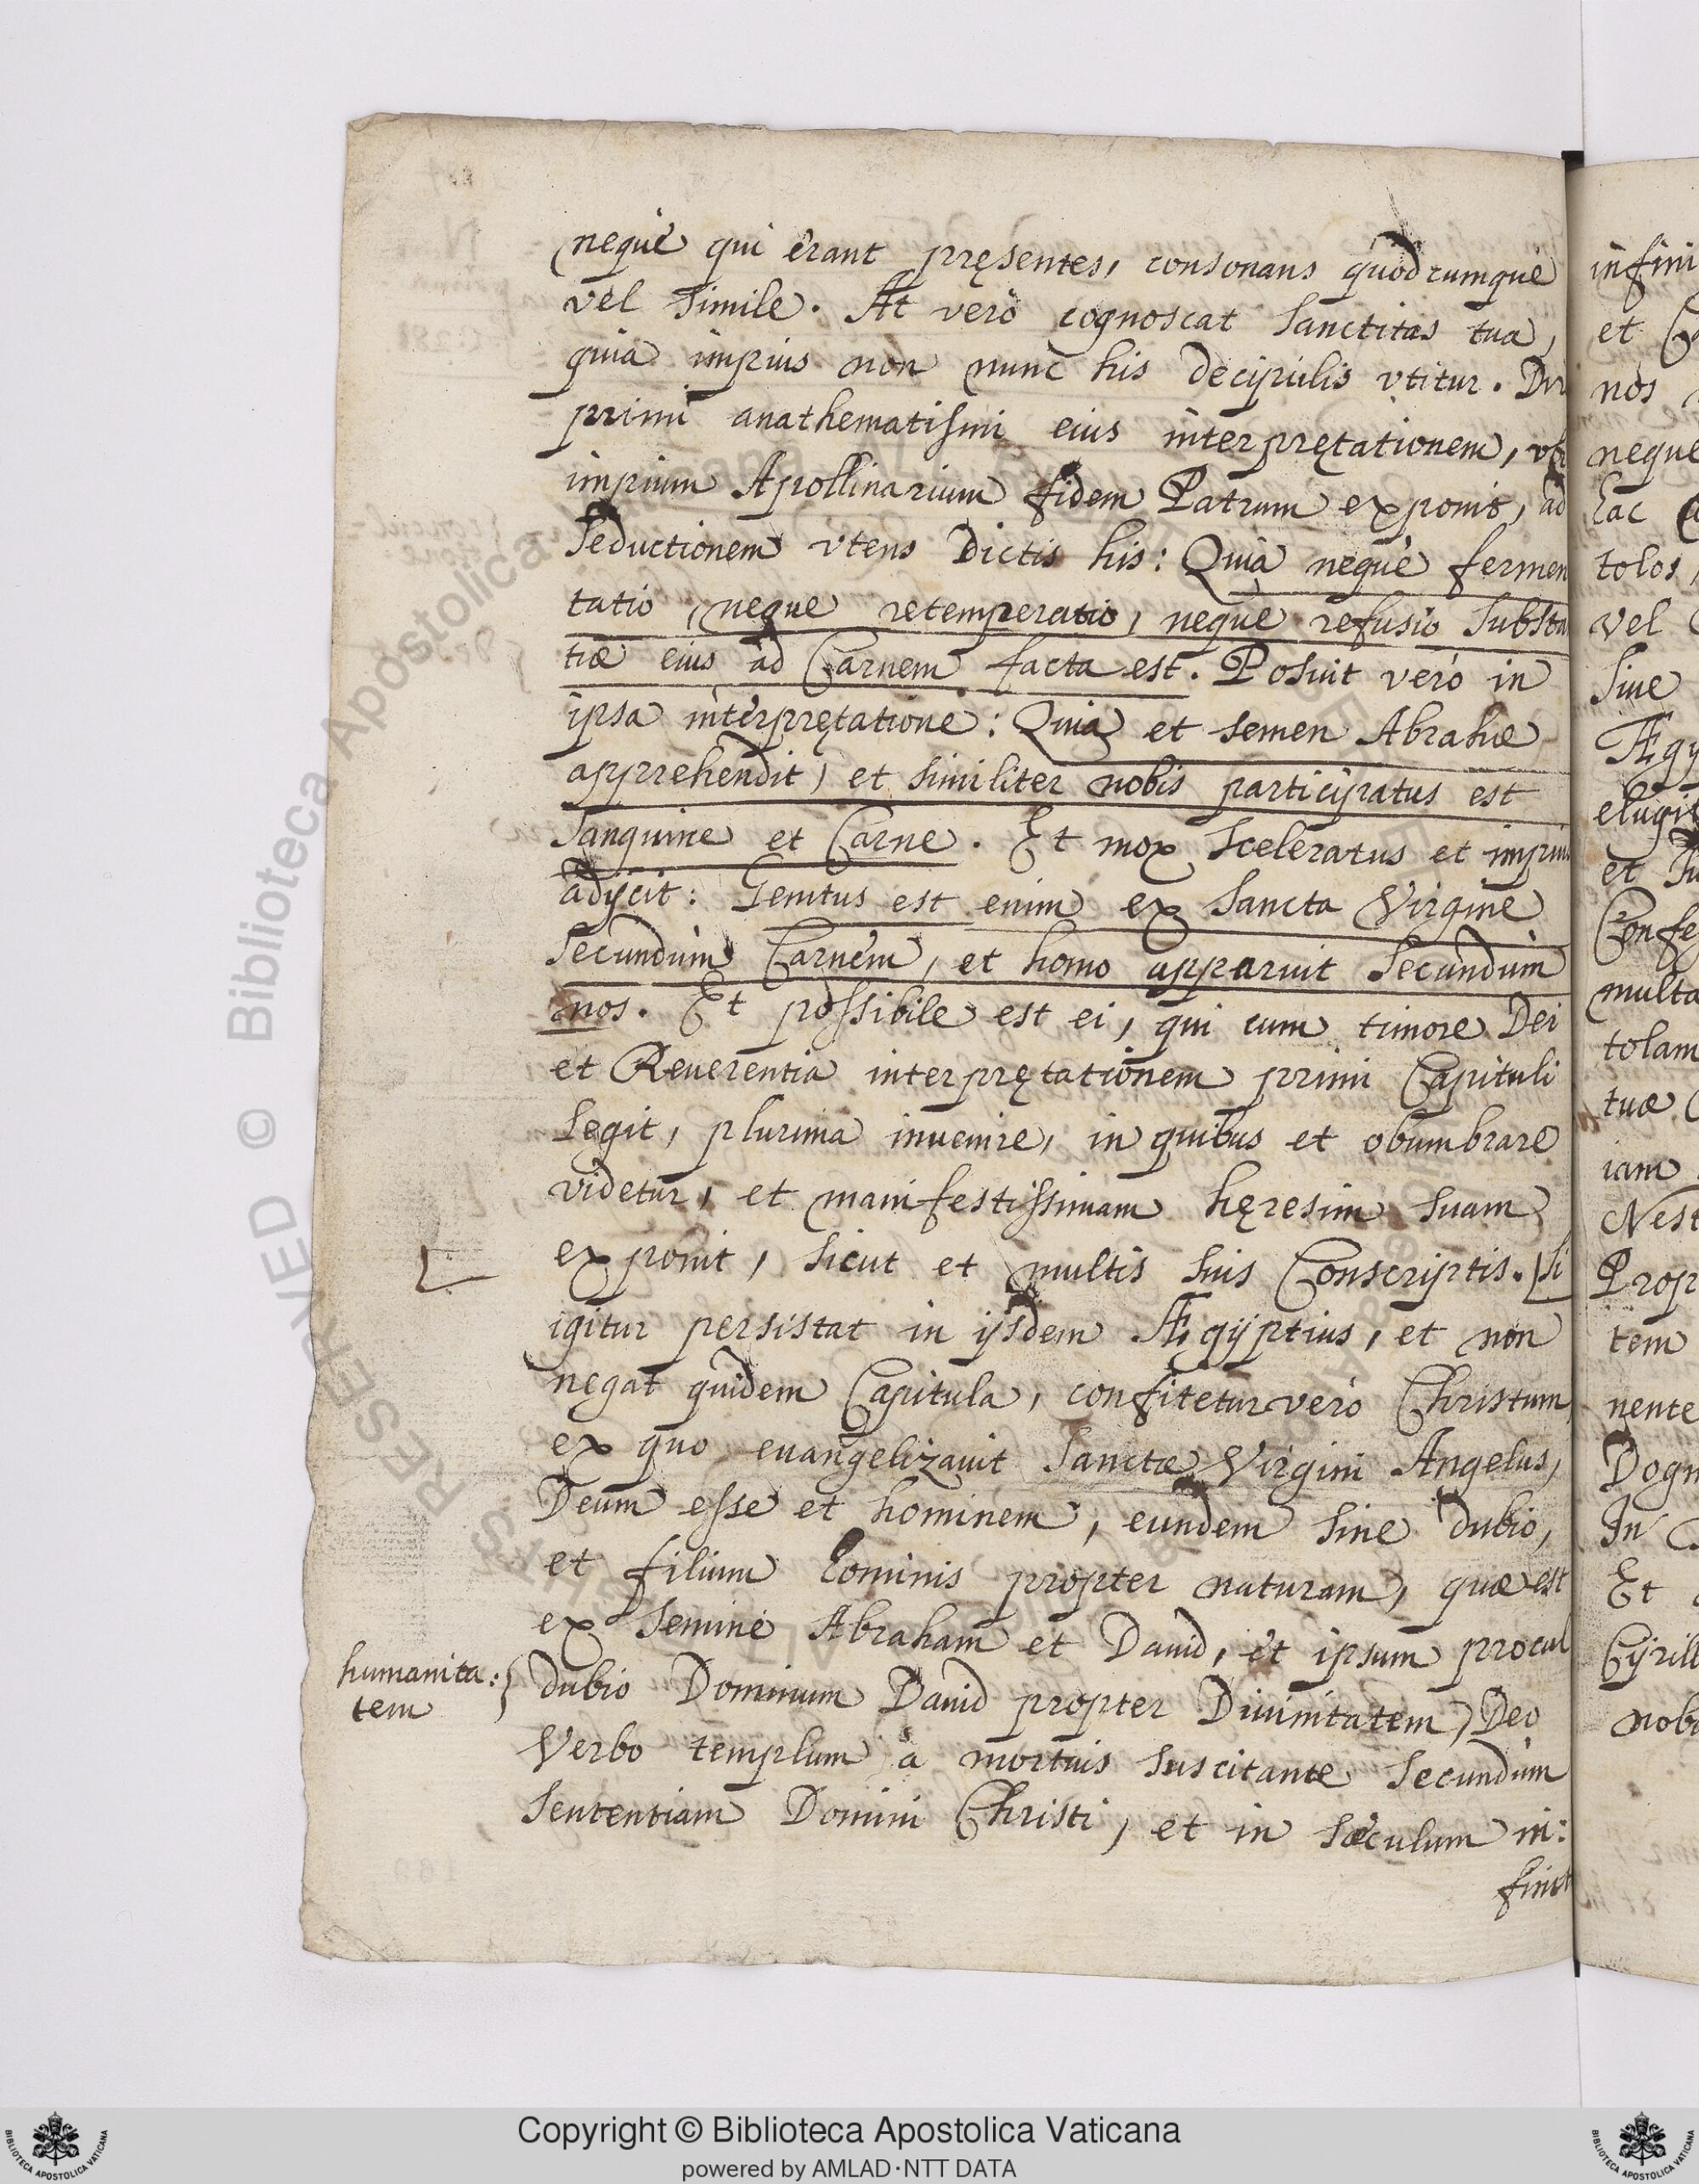 nequè qui erant pręsentes, consonans quodcumque
vel simile. At verò cognoscat Sanctitas tua,
quia impius non nunc his decipulis vtitur.
primi anathematismi eius interprętationem,
impium Apollinarium fidem Patrum exponit, ad
Seductionem vtens Dictis his: Quia nequè fermen
tatio, neque retemperatio, neque refusio substa
tiæ eius ad Carnem facta est. Posuit verò in
ipsa interpretatione: Quia et semen Abrahæ
apprehendit, et similiter nobis participatus est
Sanguine et Carne. Et mox Sceleratus et
adijcit: Genitus est enim ex Sancta Virgine
Secundùm Carnem, et homo apparuit Secundùm
nos. Et possibile est ei, qui cum timore Dei
et Reuerentia interprętationem primi Capituli
legit, plurima inuenire, in quibus et obumbrare
videtur, et manifestissimam hęresim suam
exponit, sicut et multis suis Conscriptis. Si
igitur persistat in ijsdem Ægyptius, et non
negat quidem Capitula, confitetur verò Christum,
ex quo euangelizauit Sanctæ Virgini Angelus,
Deum esse et hominem, eundem sine dubio,
et filium hominis propter naturam, quæ est
ex semine Abraham et Dauid, et ipsum procul
humanita:
tem
dubio Dominum Dauid propter Diuinitatem, Deo
Verbo templum à mortuis suscitante Secundùm
Sententiam Domini Christi, et in sæculum in:
finit
infini
et
nos
neque
tolos,
vel
siue
et
multa
tolam
tuæ
iam
Nest
Prop
tem
nente
Dogm
In
Et
Cyrill
nobi
Copyright © Biblioteca Apostolica Vaticana
powered by AMLAD·NTT DATA
RESERVED © Biblioteca Apostolica Vaticana
BIBLIOTECA APOSTOLICA VATICANA
BIBLIOTECA APOSTOLICA VATICANA